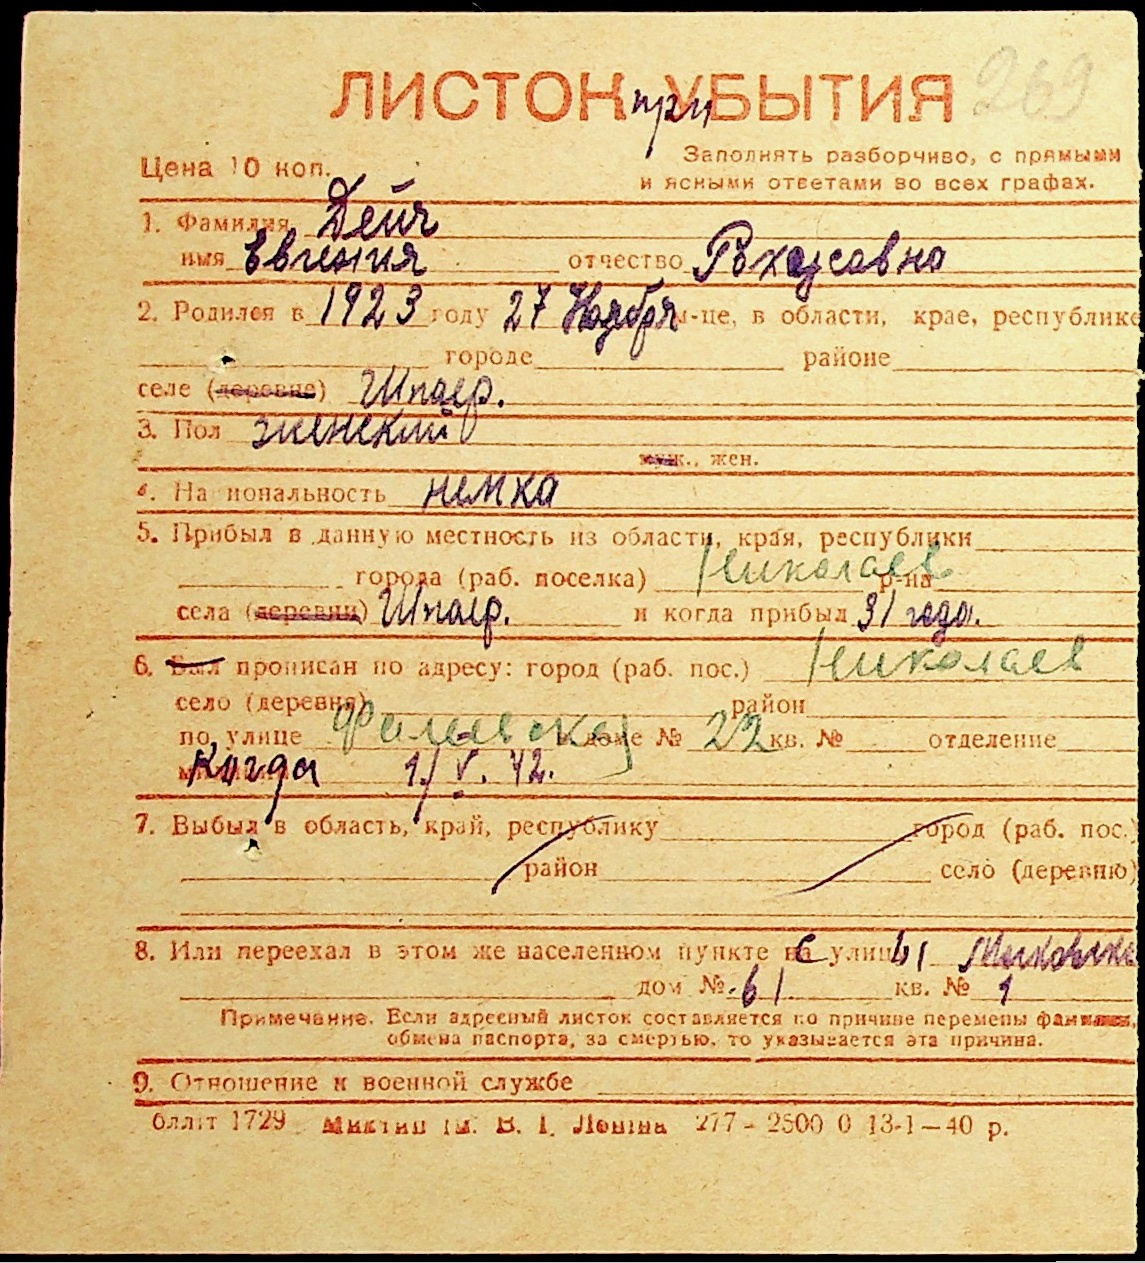 ЛИСТОК при УБЫТИЯ 269
Цена 10 коп.
Заполнять разборчиво, с прямыми
и ясными ответами во всех графах.
1. Фамилия Дейч
имя Евгения отчество
2. Родился в 1923 году 27 Ноября м-це, в области, крае, республике
городе районе
селе (деревне) Шпаер.
3. Пол женский
муж., жен.
4. Национальность немка
5. Прибыл в данную местность из области, края, республики
города (раб. поселка) Николаев р-на
села (деревни) Шпаер. и когда прибыл 31 года.
6. Был прописан по адресу: город (раб. пос.) Николаев
село (деревня) район
по улице доме № 22 кв. № отделение
Когда 1/V. 42.
7. Выбыл в область, край, республику город (раб. пос.)
район село (деревню)
8. Или переехал в этом же населенном пункте с улицы
дом № 61 кв. № 1
Примечание. Если адресный листок составляется по причине перемены фамилии,
обмена паспорта, за смертью, то указывается эта причина.
9. Отношение к военной службе
1729 В. І. Леніна 277 - 2500 0 13-1—40 р.